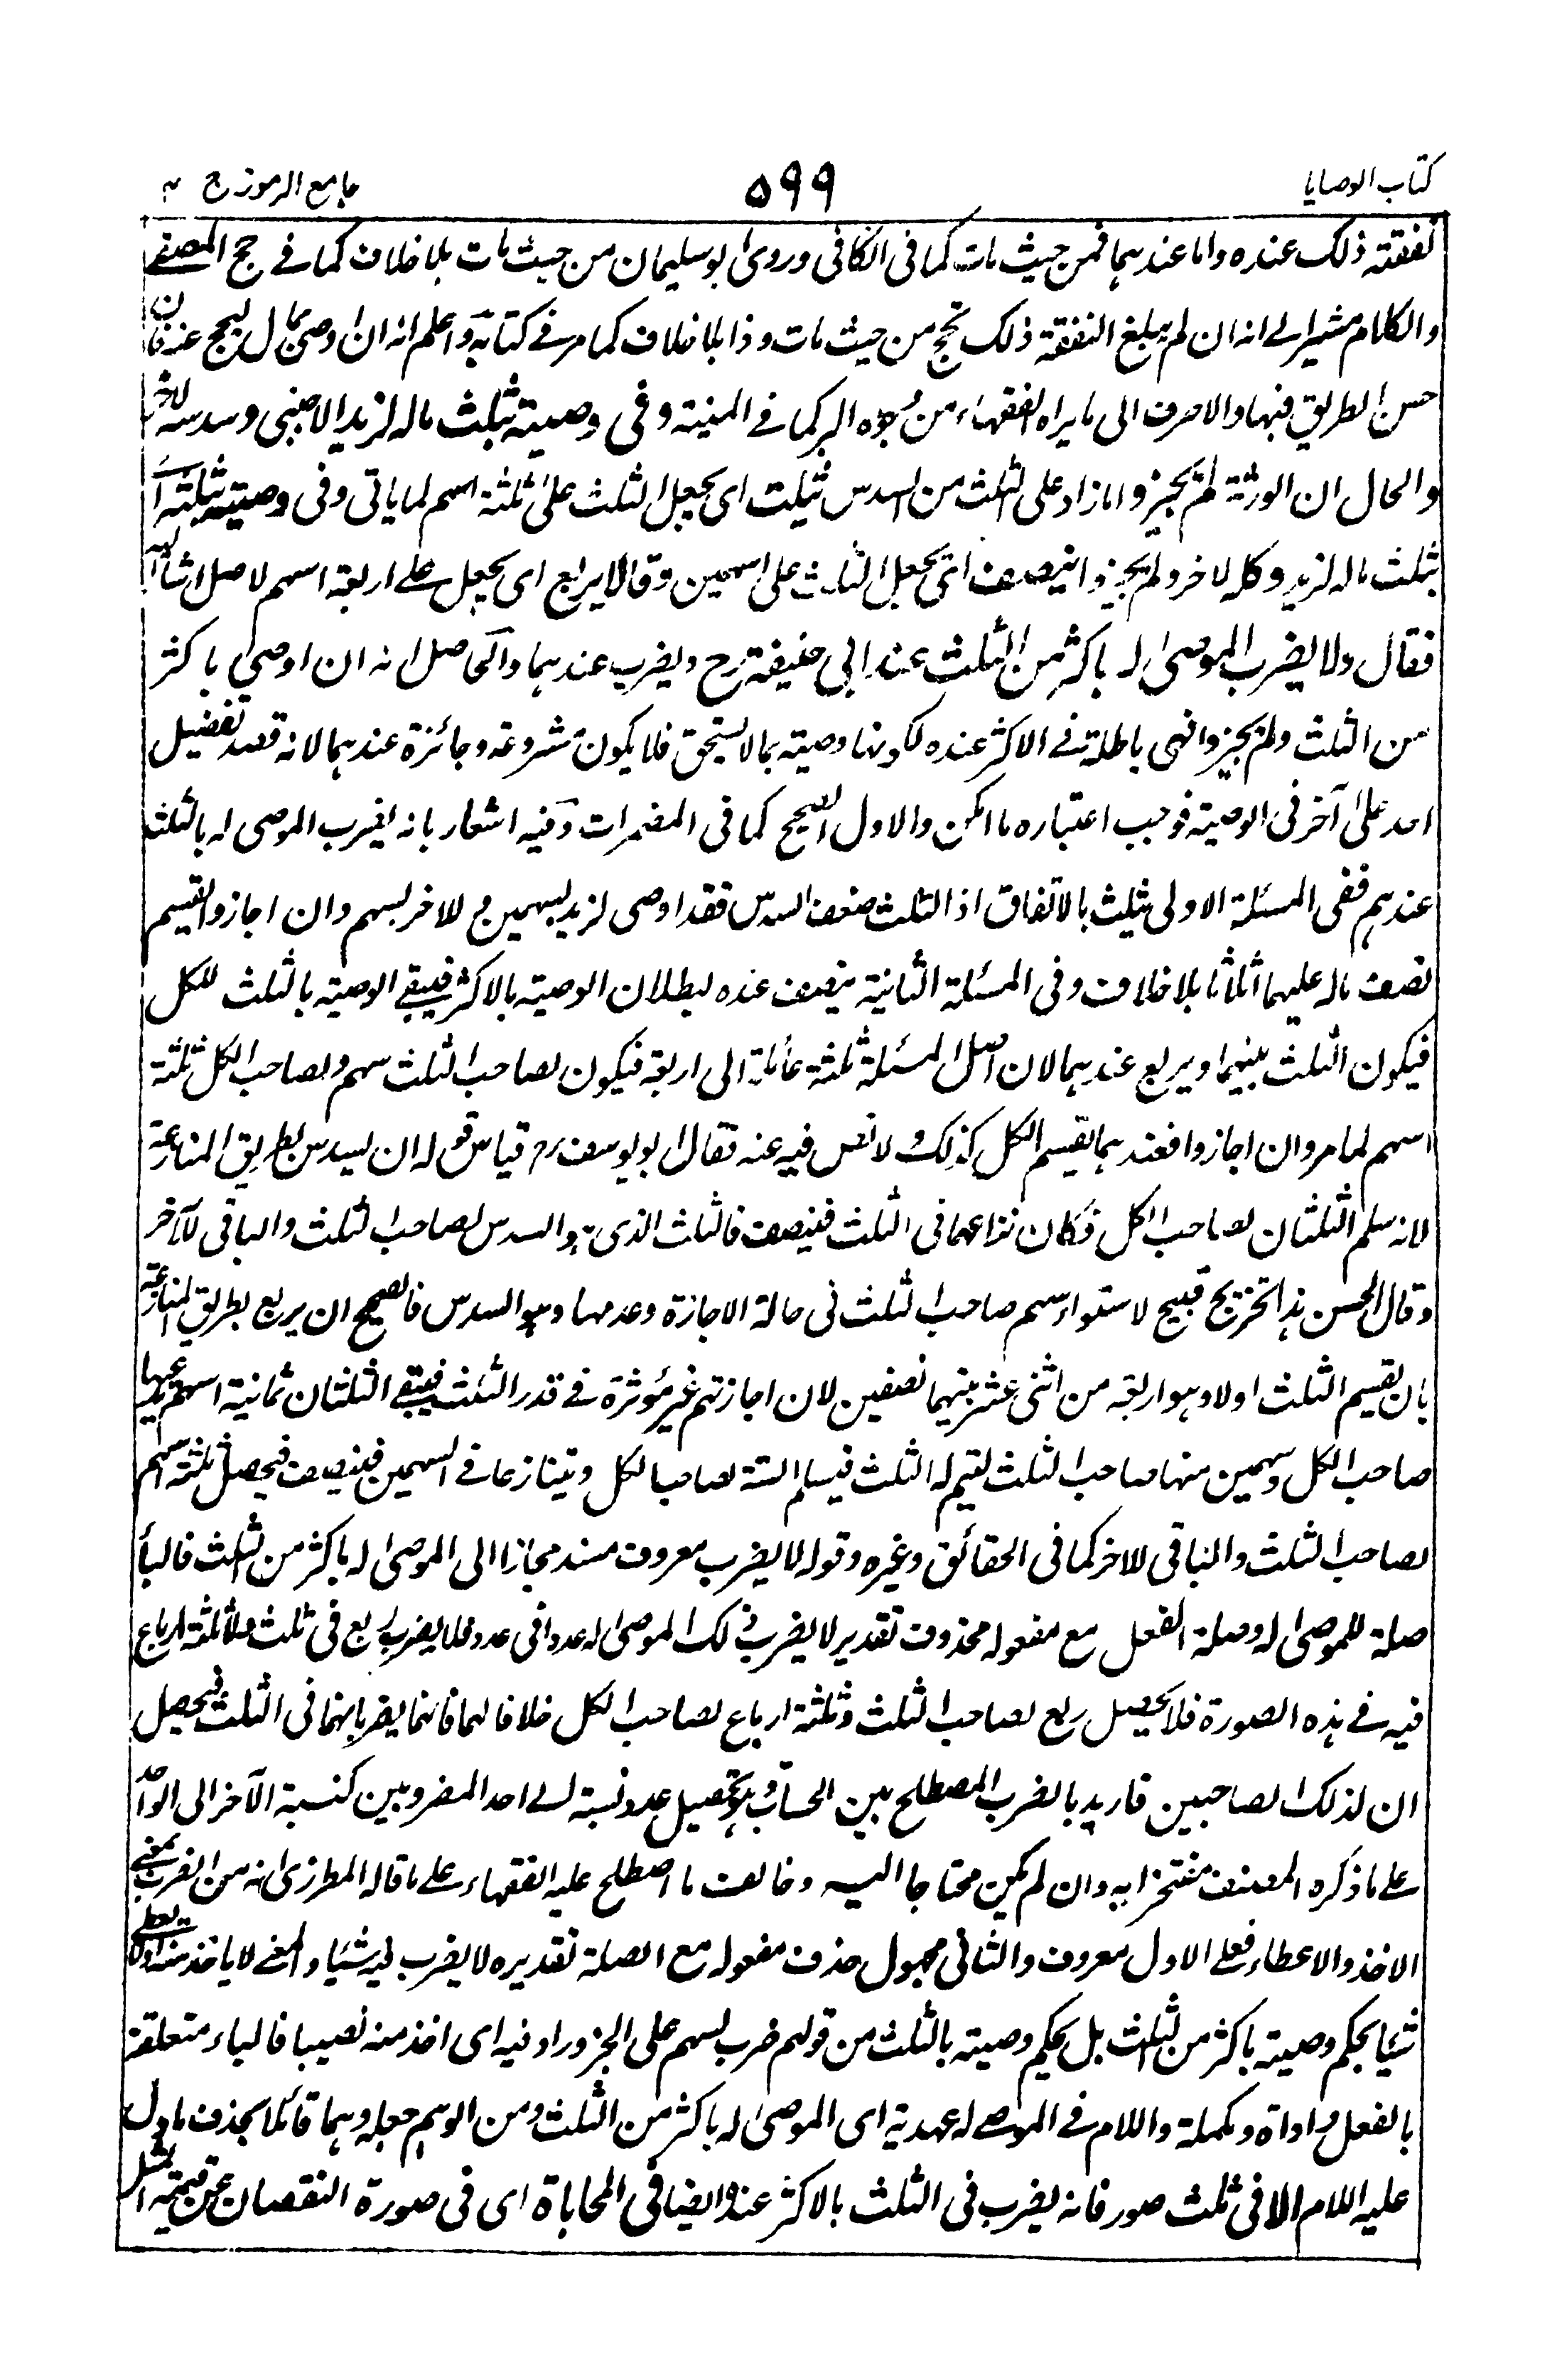 كتاب الوصايا
٥٩٩
جامع الرموز ج ٢
نفقته ذلك عنده واما عندهما فمن حيث مات كما فى الكافى وروى ابو سليمان من حيث مات بلا خلاف كما فے حج المصفى
والكلام مشير الے انه ان لم يبلغ النفقة ذلك تحج من حيث مات وذا بلا خلاف كما مر فے كتابه واعلم انه ان اوصى بمال ليحج عنه فان
حسن الطريق فبها والا صرف الى ما يراه الفقهاء من وجوه البر كما فے المنية وفى وصية بثلث ماله لزيد الاجنبى وسدسه لآخر
والحال ان الورثة لم يجيزوا ما زاد على الثلث من السدس ثيلث اى يجعل الثلث على ثلثة اسهم لما ياتى وفى وصية
بثلث ماله لزيد وكله لاخر ولم يجيزوا ينصف اى يجعل الثلث على اسهمين وقالا يربع اى يجعل علے اربعة اسهم لاصل اشار اليه
فقال ولا يضرب الموصى له باكثر من الثلث عند ابى حنيفة رح ويضرب عندهما والحاصل انه ان اوصى باكثر
من الثلث ولم يجيزوا فهى باطلة فے الاكثر عنده لكونها وصية بما لا يستحق فلا يكون مشروعة وجائزة عندهما لانه قصد تفضيل
احد على آخر فى الوصية فوجب اعتباره ما امكن والاول الصحيح كما فى المضمرات وفيه اشعار بانه يضرب الموصى له بالثلث
عندهم ففى المسئلة الاولى يثلث بالاتفاق اذ الثلث ضعف السدس فقد اوصى لزيد بسهمين وللاخر بسهم وان اجازوا يقسم
نصف ماله عليهما اثلاثا بلا خلاف وفى المسئلة الثانية ينصف عنده لبطلان الوصية بالاكثر فيبقے الوصية بالثلث للكل
فيكون الثلث بينهما ويربع عندهما لان اصل المسئلة ثلثة عائلة الى اربعة فيكون لصاحب الثلث سهم ولصاحب الكل ثلثة
اسهم لما مر وان اجازوا فعندهما يقسم الكل كذلك ولا نص فيه عنه فقال ابو يوسف رح قياس قوله ان يسدس بطريق المنازعة
لانه سلم الثلثان لصاحب الكل فكان نزاعهما فى الثلث فينصف فالثلث الذى هو السدس لصاحب الثلث والباقى للآخر
وقال الحسن هذا تخريج قبيح لاستواء سهم صاحب الثلث فى حالة الاجازة وعدمها وهو السدس فالصحيح ان يربع بطريق المنازعة
بان يقسم الثلث اولا وهو اربعة من اثنى عشر بينهما نصفين لان اجازتهم غير مؤثرة فے قدر الثلث فيبقے الثلثان ثمانية اسهم يدعيها
صاحب الكل وسهمين منها صاحب الثلث ليتم له الثلث فيسلم الستة لصاحب الكل ويتنازعا فے السهمين فينصف فيحصل ثلثة اسهم
لصاحب الثلث والباقى للاخر كما فى الحقائق وغيره وقوله لا يضرب معروف مسند مجازا الى الموصى له باكثر من الثلث فالباء
صلة للموصى له وصلة الفعل مع مفعوله محذوف تقديره لا يضرب ذلك الموصى له عددا فى عدد فلا يضرب الربع فى ثلث ولا ثلثة ارباع
فيه فے هذه الصورة فلا يحصل ربع لصاحب الثلث وثلثة ارباع لصاحب الكل خلافا لهما فانهما يضربانهما فى الثلث فيحصل
ان لذلك الصاحبين فاريد بالضرب المصطلح بين الحساب وهو تحصيل عدد نسبة الے احد المضروبين كنسبة الآخر الى الواحد
علے ما ذكره المصنف مفتخرا به وان لم يكن محتاجا اليه وخالف ما اصطلح عليه الفقهاء علے ما قاله المطرزى انه من الضرب بمعنى
الاخذ والاعطاء فعلے الاول معروف والثانى مجهول حذف مفعوله مع الصلة تقديره لا يضرب فيه شيئا والمعنے لا ياخذ منه او لا يعطے
شيئا بحكم وصيته باكثر من الثلث بل بحكم وصيته بالثلث من قولهم ضرب بسهم على الجزور او فيه اى اخذ منه نصيبا فالباء متعلقة
بالفعل واداة ومكملة واللام فے الموصے له عهدية اى الموصى له باكثر من الثلث ومن الوهم جعله وهما قائلا بحذف ما دل
عليه اللام الا فى ثلث صور فانه يضرب فى الثلث بالاكثر عنده ايضا فى المحاباة اى فى صورة النقصان عن قيمة المثل